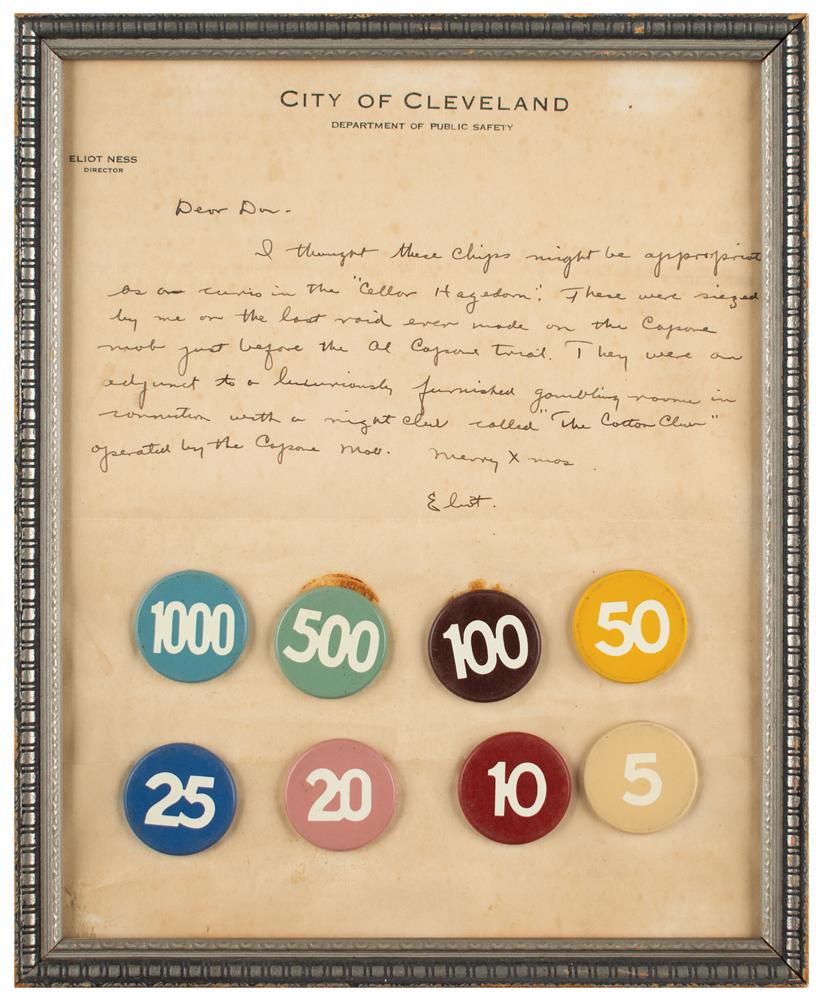 CITY OF CLEVELAND
DEPARTMENT OF PUBLIC SAFETY
ELIOT NESS
DIRECTOR
Dear Don -
I thought these chips might be appropriate
as a curio in the "Cellar Hagedorn". These were siezed
by me on the last raid ever made on the Capone
mob just before the Al Capone trial. They were an
adjunct to a luxuriously furnished gambling room in
connection with a night club called "The Cotton Club"
operated by the Capone Mob. Merry Xmas
Eliot.
1000 500 100 50
25 20 10 5